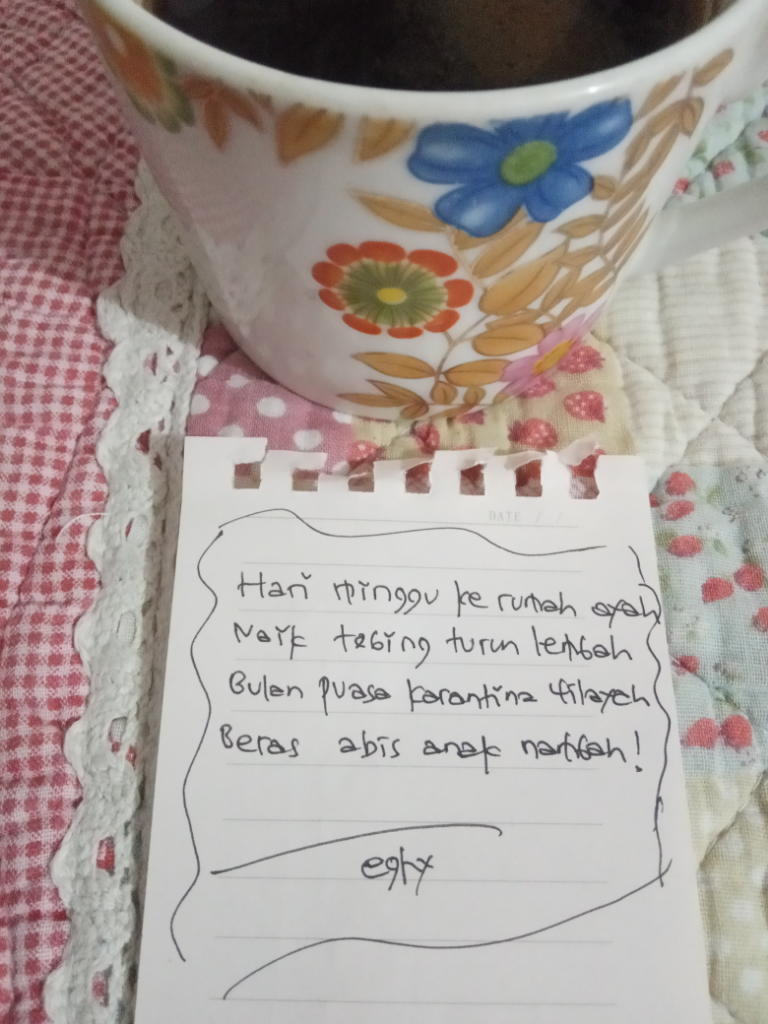 DATE / /
Hari minggu ke rumah ayah
Naik tebing turun lembah
Bulan puasa karantina wilayah
Beras abis anak nambah!